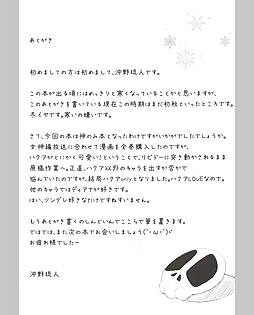 あとがき
初めましての方は初めまして、沖野琉人です。
この本が出る頃にはめっきりと寒くなっていることかと思いますが、
このあとがきを書いている現在この時期はまだ初秋といったところです。
冬イヤです。寒いの嫌いです。
さて、今回の本は神のみ本となったわけですがいかがでしたでしょうか。
女神編放送に合わせて漫画を全巻購入したのですが、
ハクアがとにかく可愛い!ということで、リビドーに突き動かされるまま
原稿作業へ。正直、ハクア以外のキャラを出すか否かで
悩んでいたのですが、結局ハクアonlyとなりました。ハクアLoveなので。
他のキャラではディアナが好きです。
はい、ツンデレ好きなだけですねすいません。
もうあとがき書くのしんどいんでここらで筆を置きます。
ではでは、また次の本でお会いしましょう(`・ω・´)ゞ
お疲れ様でしたー
沖野琉人